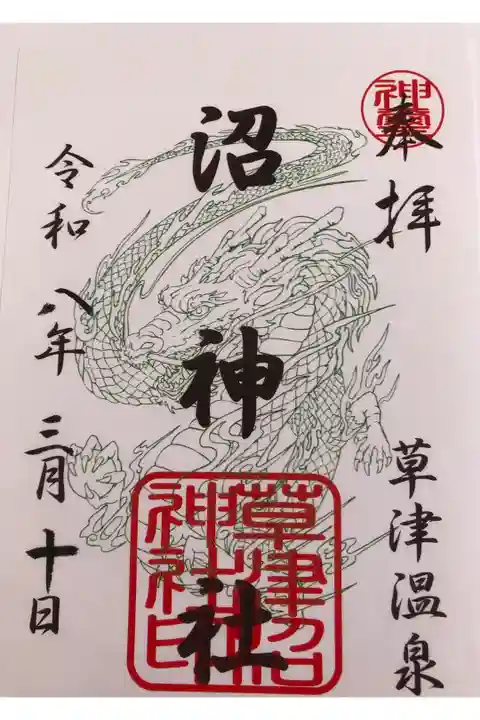 奉拝
草津温泉
沼神社
草津沼
神社印
令和八年三月十日